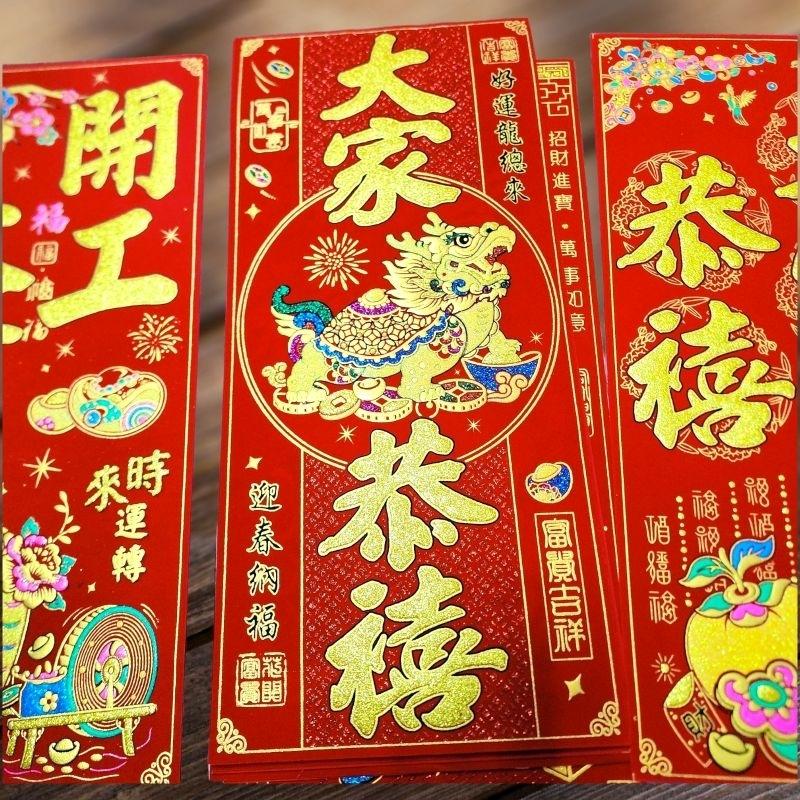 開工
福
時來運轉
大家恭禧
好運龍總來
富貴吉祥
迎春納福
花開富貴
招財進寶・萬事如意
富貴吉祥
恭禧
財